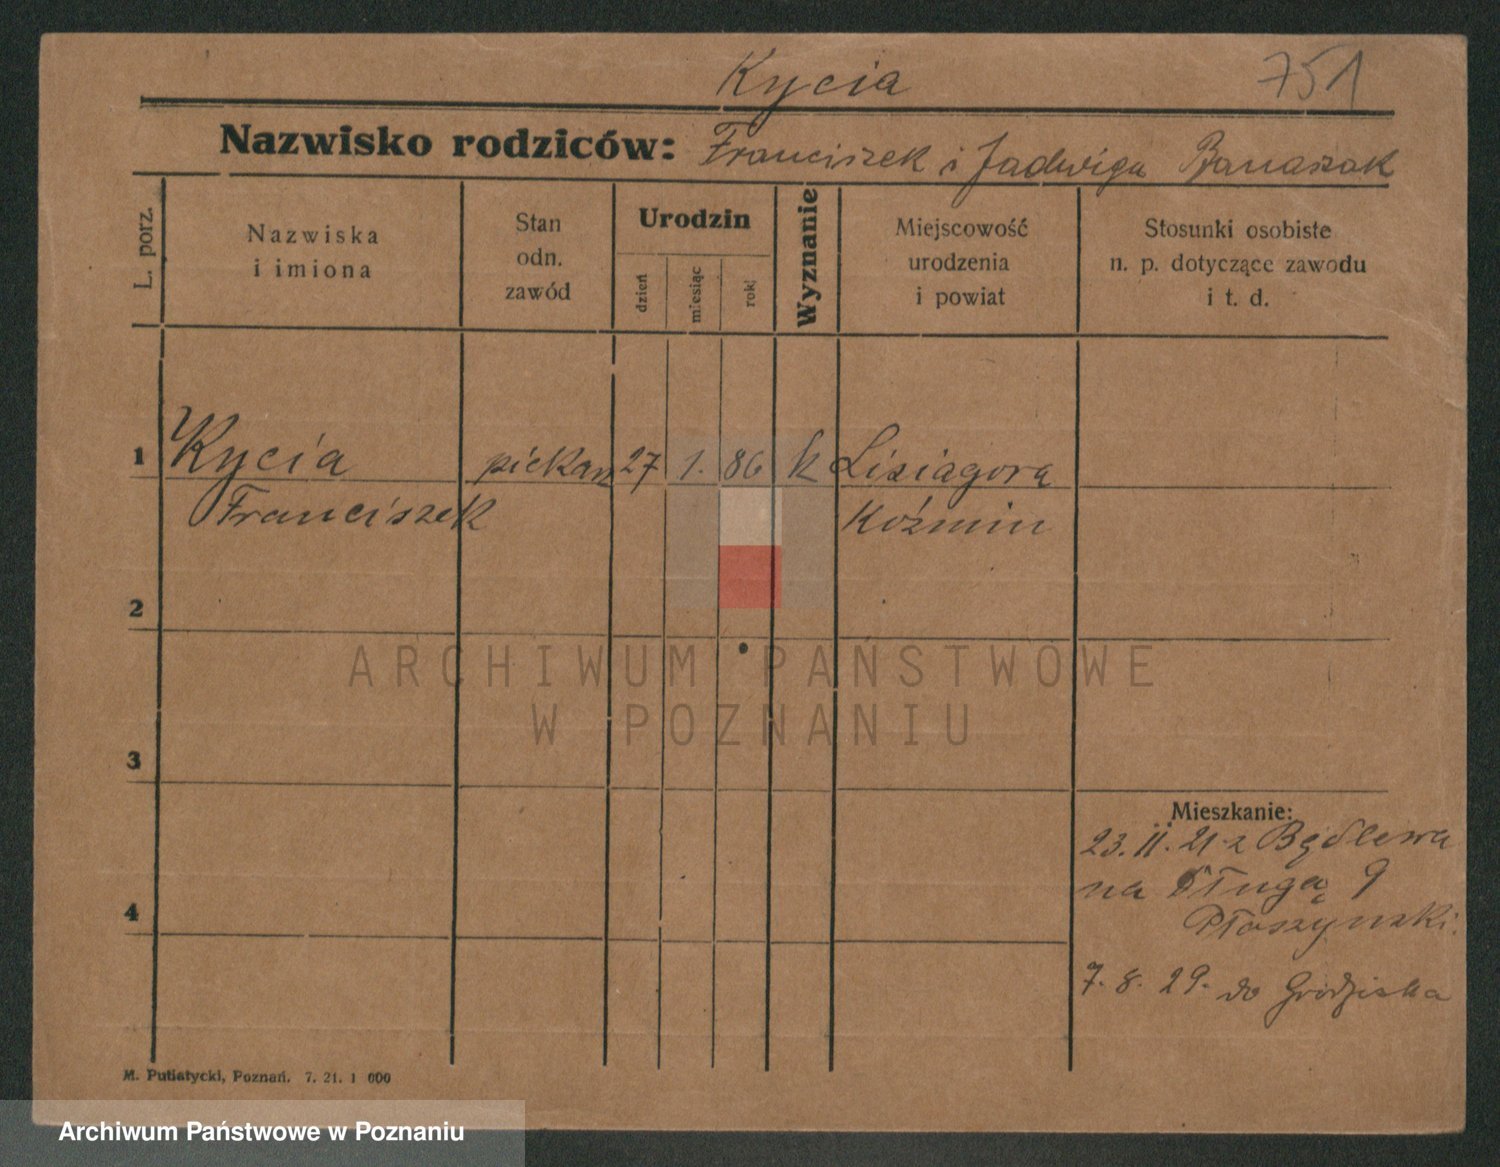 Kycia
751
Nazwisko rodziców: Franciszek i Jadwiga Banaszak
L. porz.
Nazwiska
i imiona
Stan
odn.
zawód
Urodzin
dzień
miesiąc
rok
Wyznanie
Miejscowość
urodzenia
i powiat
Stosunki osobiste
n. p. dotyczące zawodu
i t. d.
1 Kycia piekarz 27 1. 86 k Lisiagora
Franciszek Koźmin
2
ARCHIWUM PAŃSTWOWE
W POZNANIU
3
Mieszkanie:
23. II. 21 z Będlewa
na Długą 9
4
Płoszynski.
7. 8. 29. do Grodziska
M. Putiatycki, Poznań. 7. 21. 1 000
Archiwum Państwowe w Poznaniu